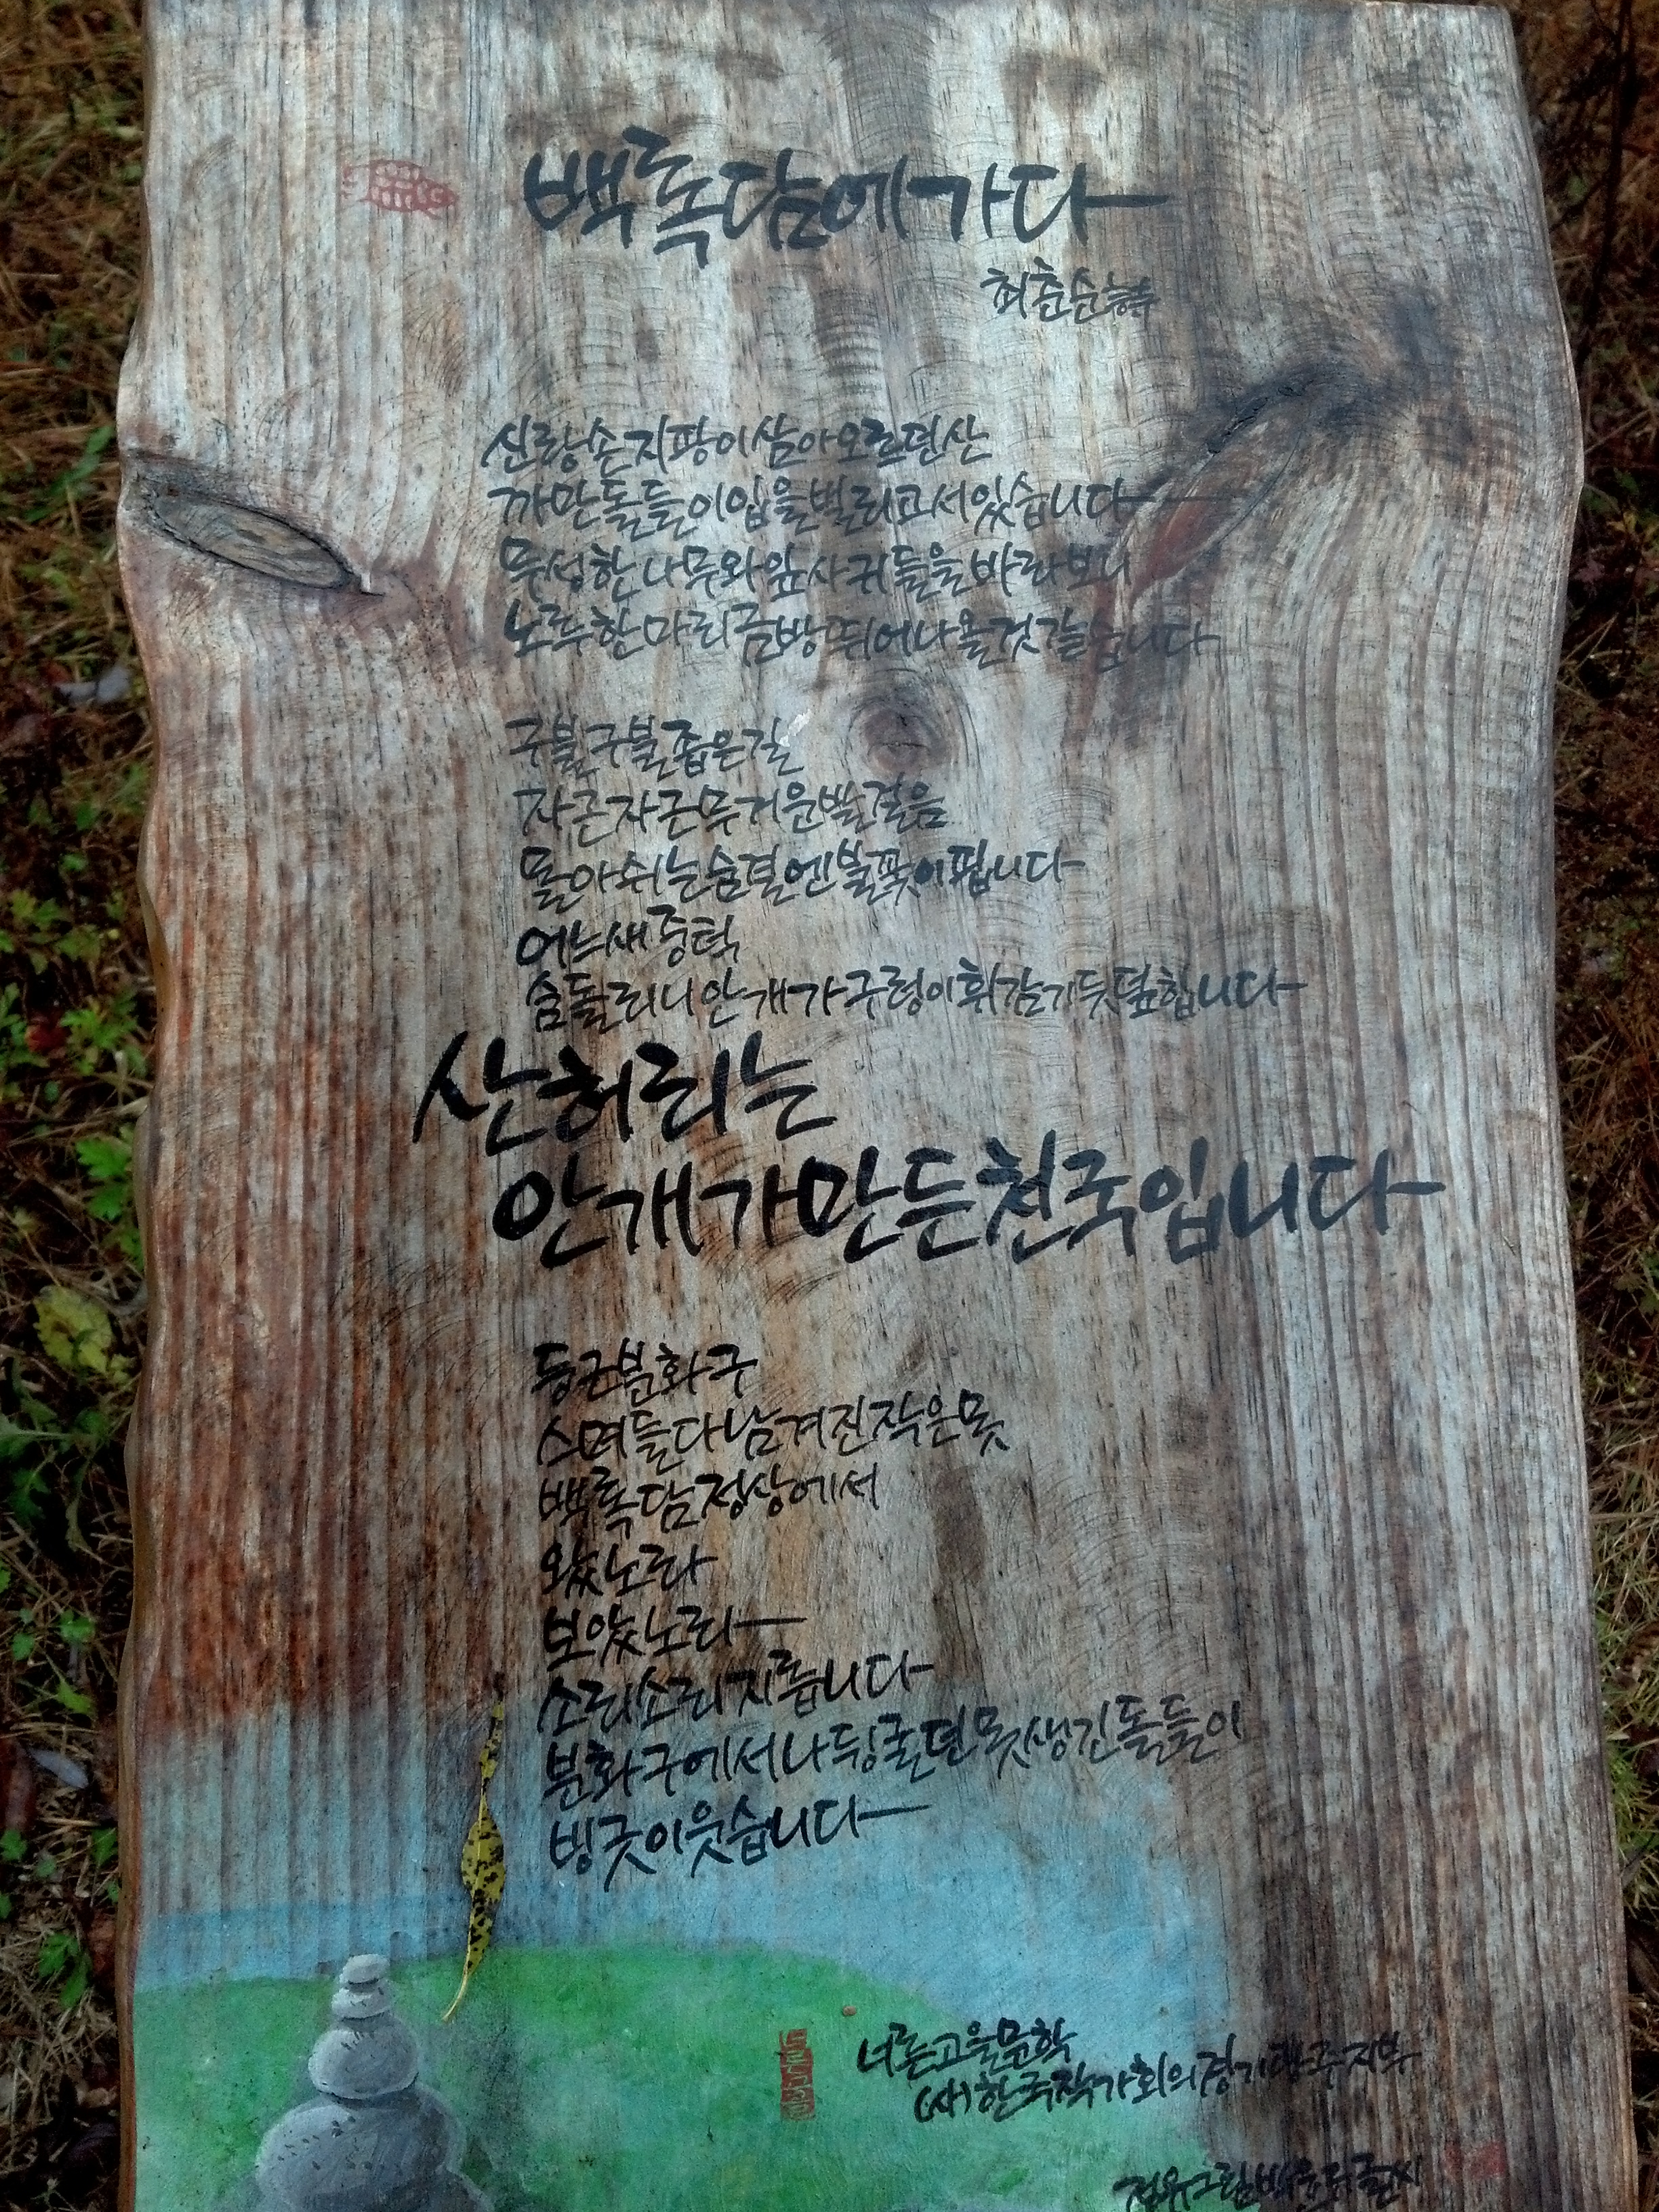 백록담에 가다
최춘순
신랑 손 지팡이 삼아 오르던 산
까만 돌들이 입을 벌리고 서 있습니다
무성한 나무와 잎사귀들을 바라보니
노루 한 마리 금방 뛰어나올 것 같습니다
구불구불 좁은 길
자근자근 무거운 발걸음
몰아쉬는 숨결엔 불꽃이 핍니다
어느새 중턱
숨 돌리니 안개가 구렁이 휘감기듯 덮칩니다
산허리는
안개가 만든 천국입니다
둥근 분화구
스며들다 남겨진 작은 못
백록담 정상에서
왔노라
보았노라
소리소리 지릅니다
분화구에서 나뒹굴던 못생긴 돌들이
빙긋이 웃습니다
너른고을문학
(사)한국작가회의 경기광주지부
그림 글씨